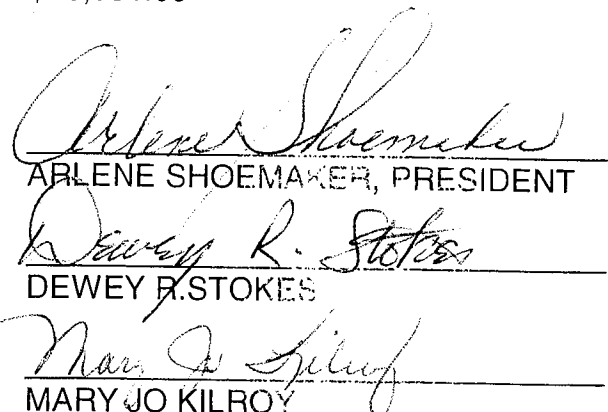 Arlene Shoemaker
ARLENE SHOEMAKER, PRESIDENT
Dewey R. Stokes
DEWEY R.STOKES
Mary Jo Kilroy
MARY JO KILROY